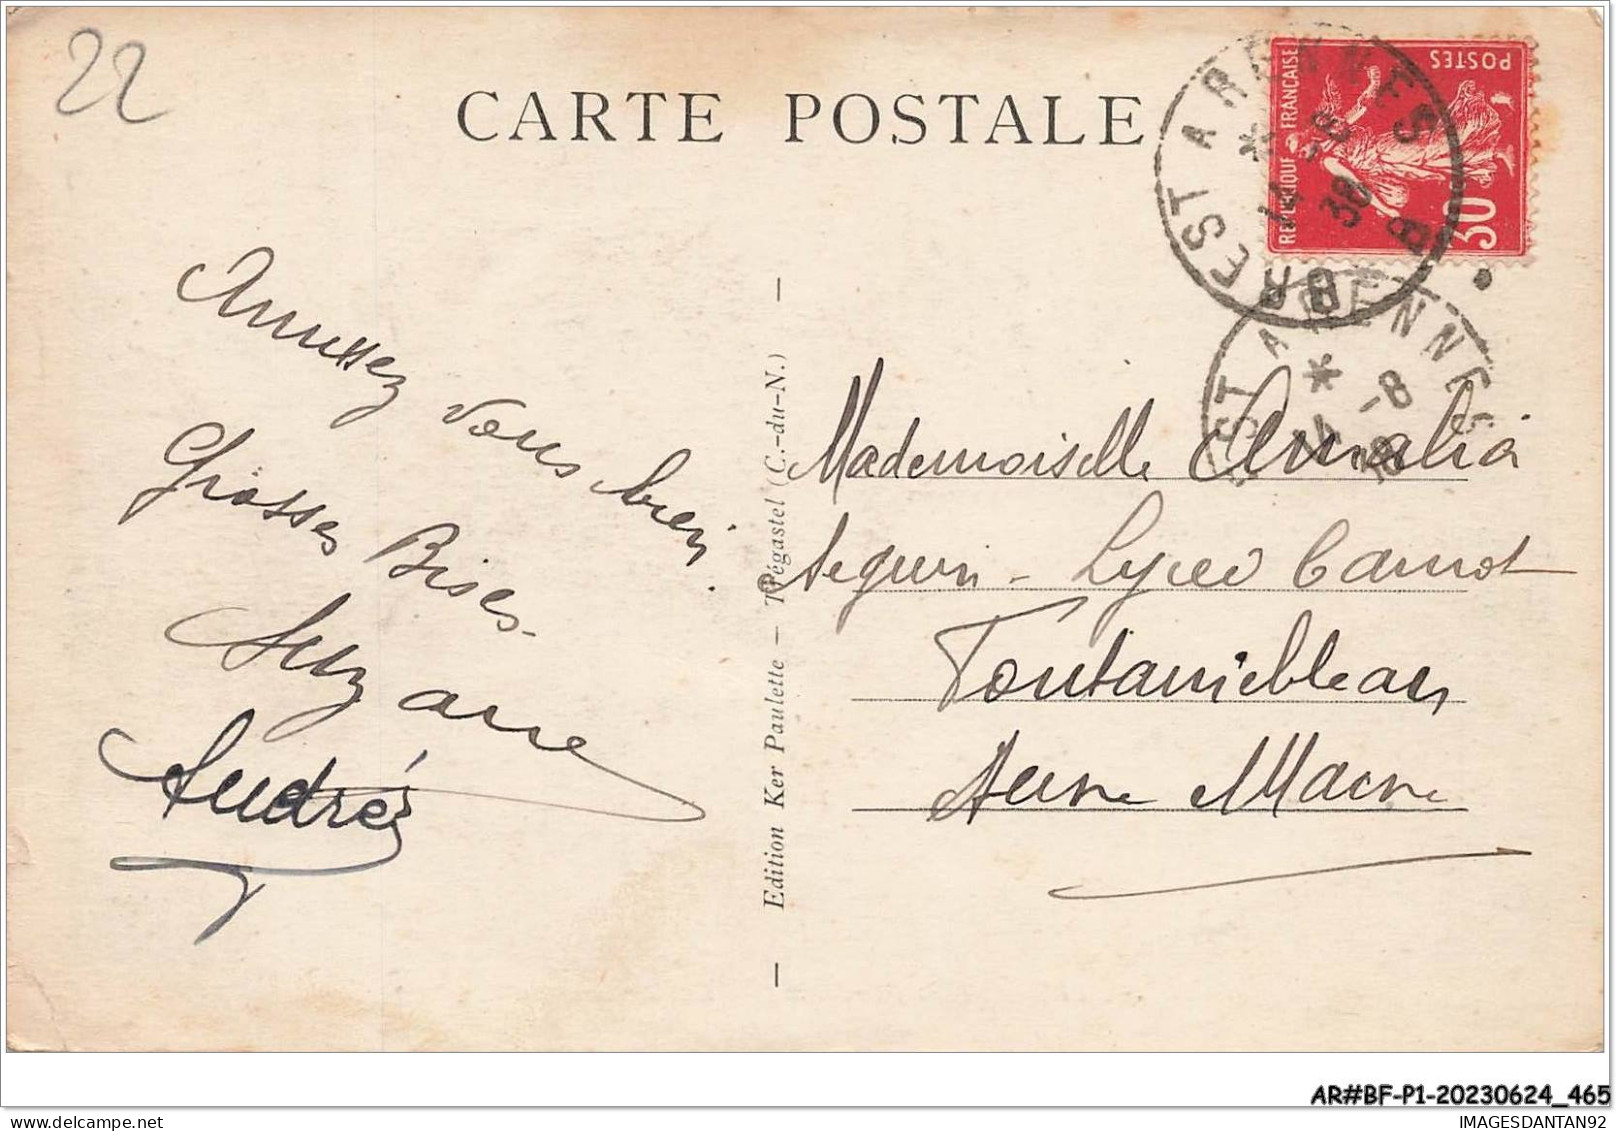 22
CARTE POSTALE
REPUBLIQUE FRANÇAISE
POSTES
30
BREST A RENNES B
14 -8
38
ST A RENNES
14 -8
38
Amusez
vous bien.
Grosses Bises.
Suzanne
Andrée
Edition Ker Paulette – Trégastel (C.-du-N.)
Mademoiselle Amalia
Seguin - Lycée Carnot
Fontainebleau
Seine et Marne
AR#BF-P1-20230624_465
IMAGESDANTAN92